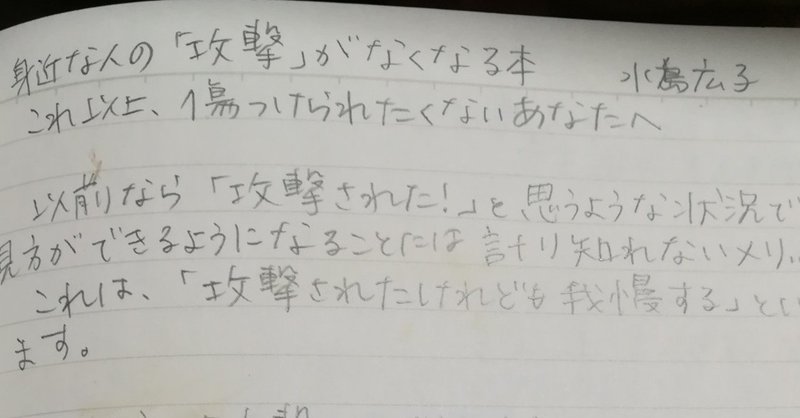 身近な人の「攻撃」がなくなる本 水島広子
これ以上、傷つけられたくないあなたへ
以前なら「攻撃された!」と思うような状況で
見方ができるようになることには計り知れないメリ
これは、「攻撃されたけれども我慢する」とい
ます。